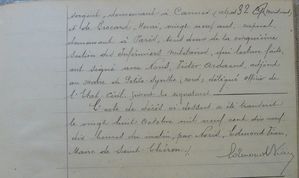 sergent, demeurant à Cannes,
et de Brocard, Henri, vingt neuf ans,
demeurant à Paris, tous deux de la cinquième
section des Infirmiers militaires, qui lecture faite,
ont signé avec Nous, Victor adjoint
au maire de Petite Synthe, Nord, délégué officier de
l'Etat civil.
L'acte de décès ci dessus a été transcrit
le vingt huit octobre mil neuf cent dix neuf
dix heures du matin, par Nous, Edmond
Maire de Saint Chéron.